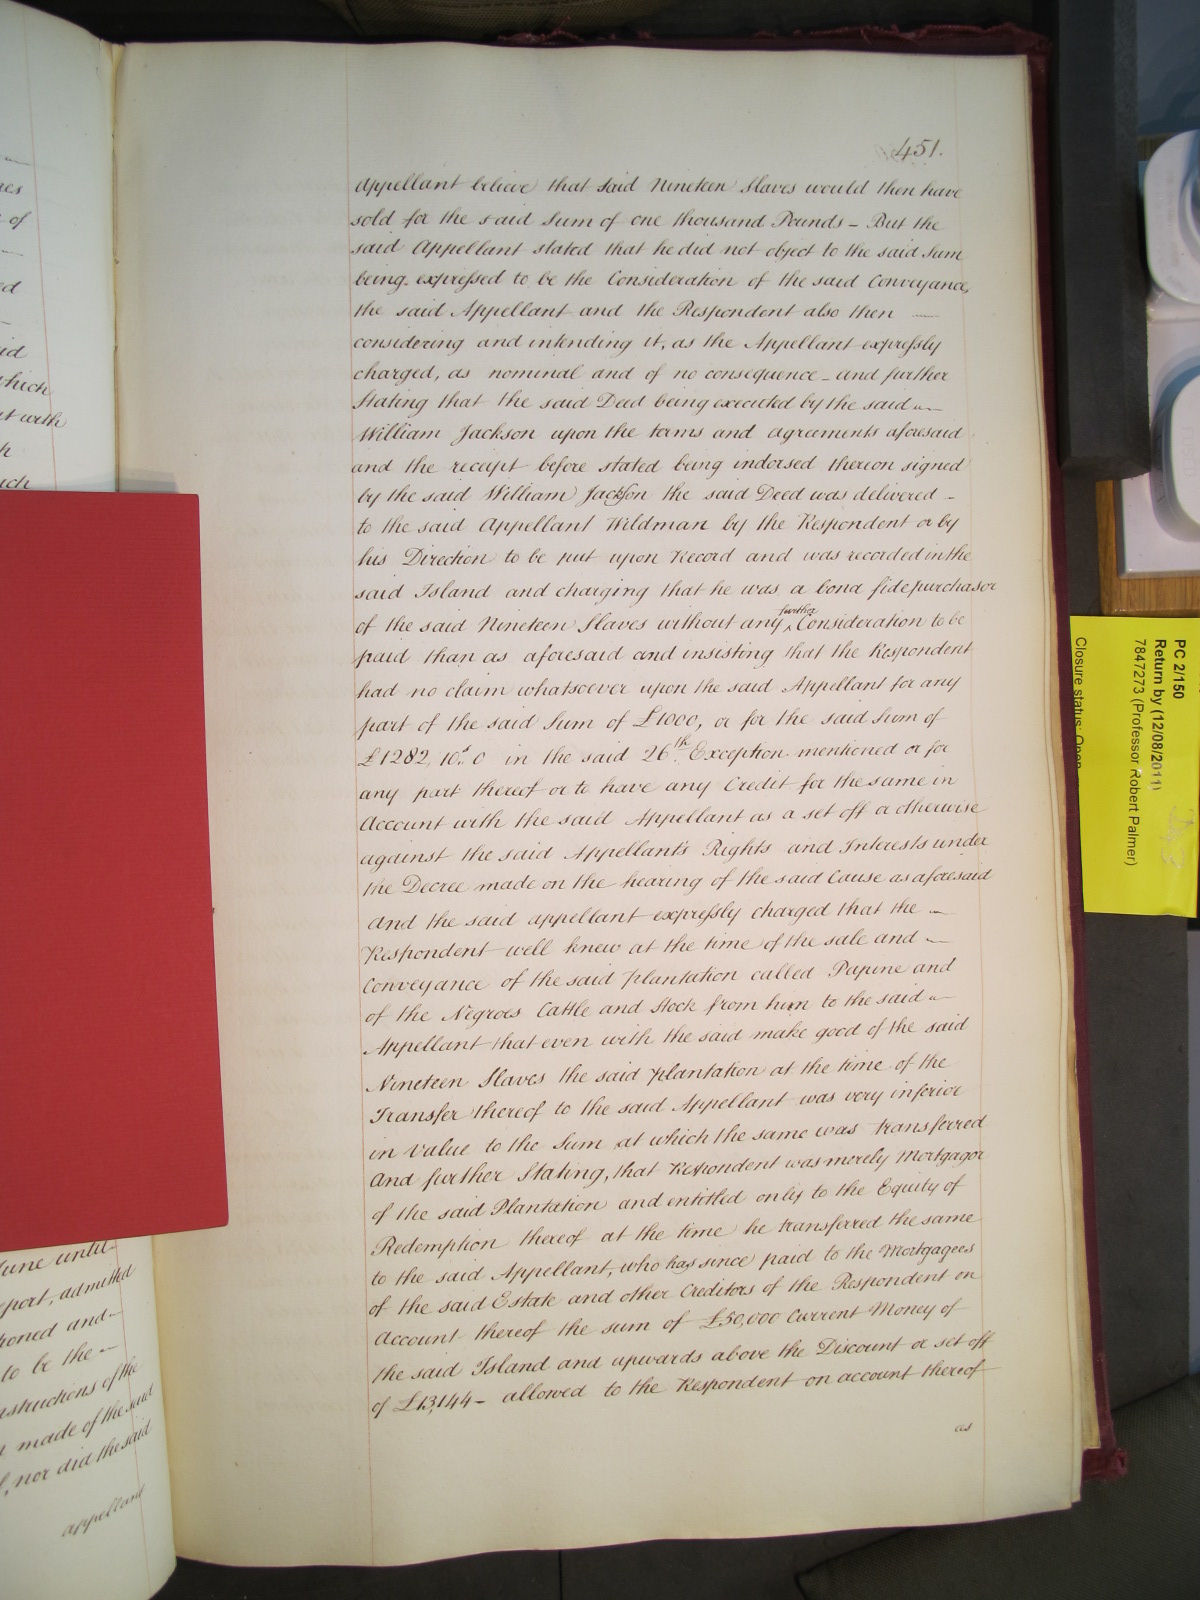 451.
Appellant believe that said Nineteen Slaves would then have
sold for the said Sum of one thousand Pounds – But the
said Appellant stated that he did not object to the said Sum
being expressed to be the Consideration of the said Conveyance,
the said Appellant and the Respondent also then —
considering and intending it, as the Appellant expressly
charged, as nominal and of no consequence – and further
Stating that the said Deed being executed by the said —
William Jackson upon the terms and agreements aforesaid
and the receipt before stated being indorsed thereon signed
by the said William Jackson the said Deed was delivered –
to the said Appellant Wildman by the Respondent or by
his Direction to be put upon Record and was recorded in the
said Island and charging that he was a bona fide purchasor
of the said Nineteen Slaves without any further Consideration to be
paid than as aforesaid and insisting that the Respondent
had no claim whatsoever upon the said Appellant for any
part of the said Sum of £1000, or for the said Sum of
£1282, 10s. 0 in the said 26th. Exception mentioned or for
any part thereof or to have any Credit for the same in
Account with the said Appellant as a set off or otherwise
against the said Appellant's Rights and Interests under
the Decree made on the hearing of the said Cause as aforesaid
And the said appellant expressly charged that the —
Respondent well knew at the time of the sale and —
Conveyance of the said plantation called Papine and
of the Negroes Cattle and Stock from him to the said —
Appellant that even with the said make good of the said
Nineteen Slaves the said plantation at the time of the
Transfer thereof to the said Appellant was very inferior
in Value to the Sum at which the same was transferred
And further Stating, that Respondent was merely Mortgagor
of the said Plantation and entitled only to the Equity of
Redemption thereof at the time he transferred the same
to the said Appellant, who has since paid to the Mortgagees
of the said Estate and other Creditors of the Respondent on
Account thereof the sum of £50,000 Current Money of
the said Island and upwards above the Discount or set off
of £13,144 – allowed to the Respondent on account thereof
as
of
ed
id
which
t with
uch
June until
eport, admitted
ioned and –
to be the –
nstructions of the
made of the said
nor did the said
appellant
PC 2/150
Return by (12/08/2011)
7847273 (Professor Robert Palmer)
Closure status: Open